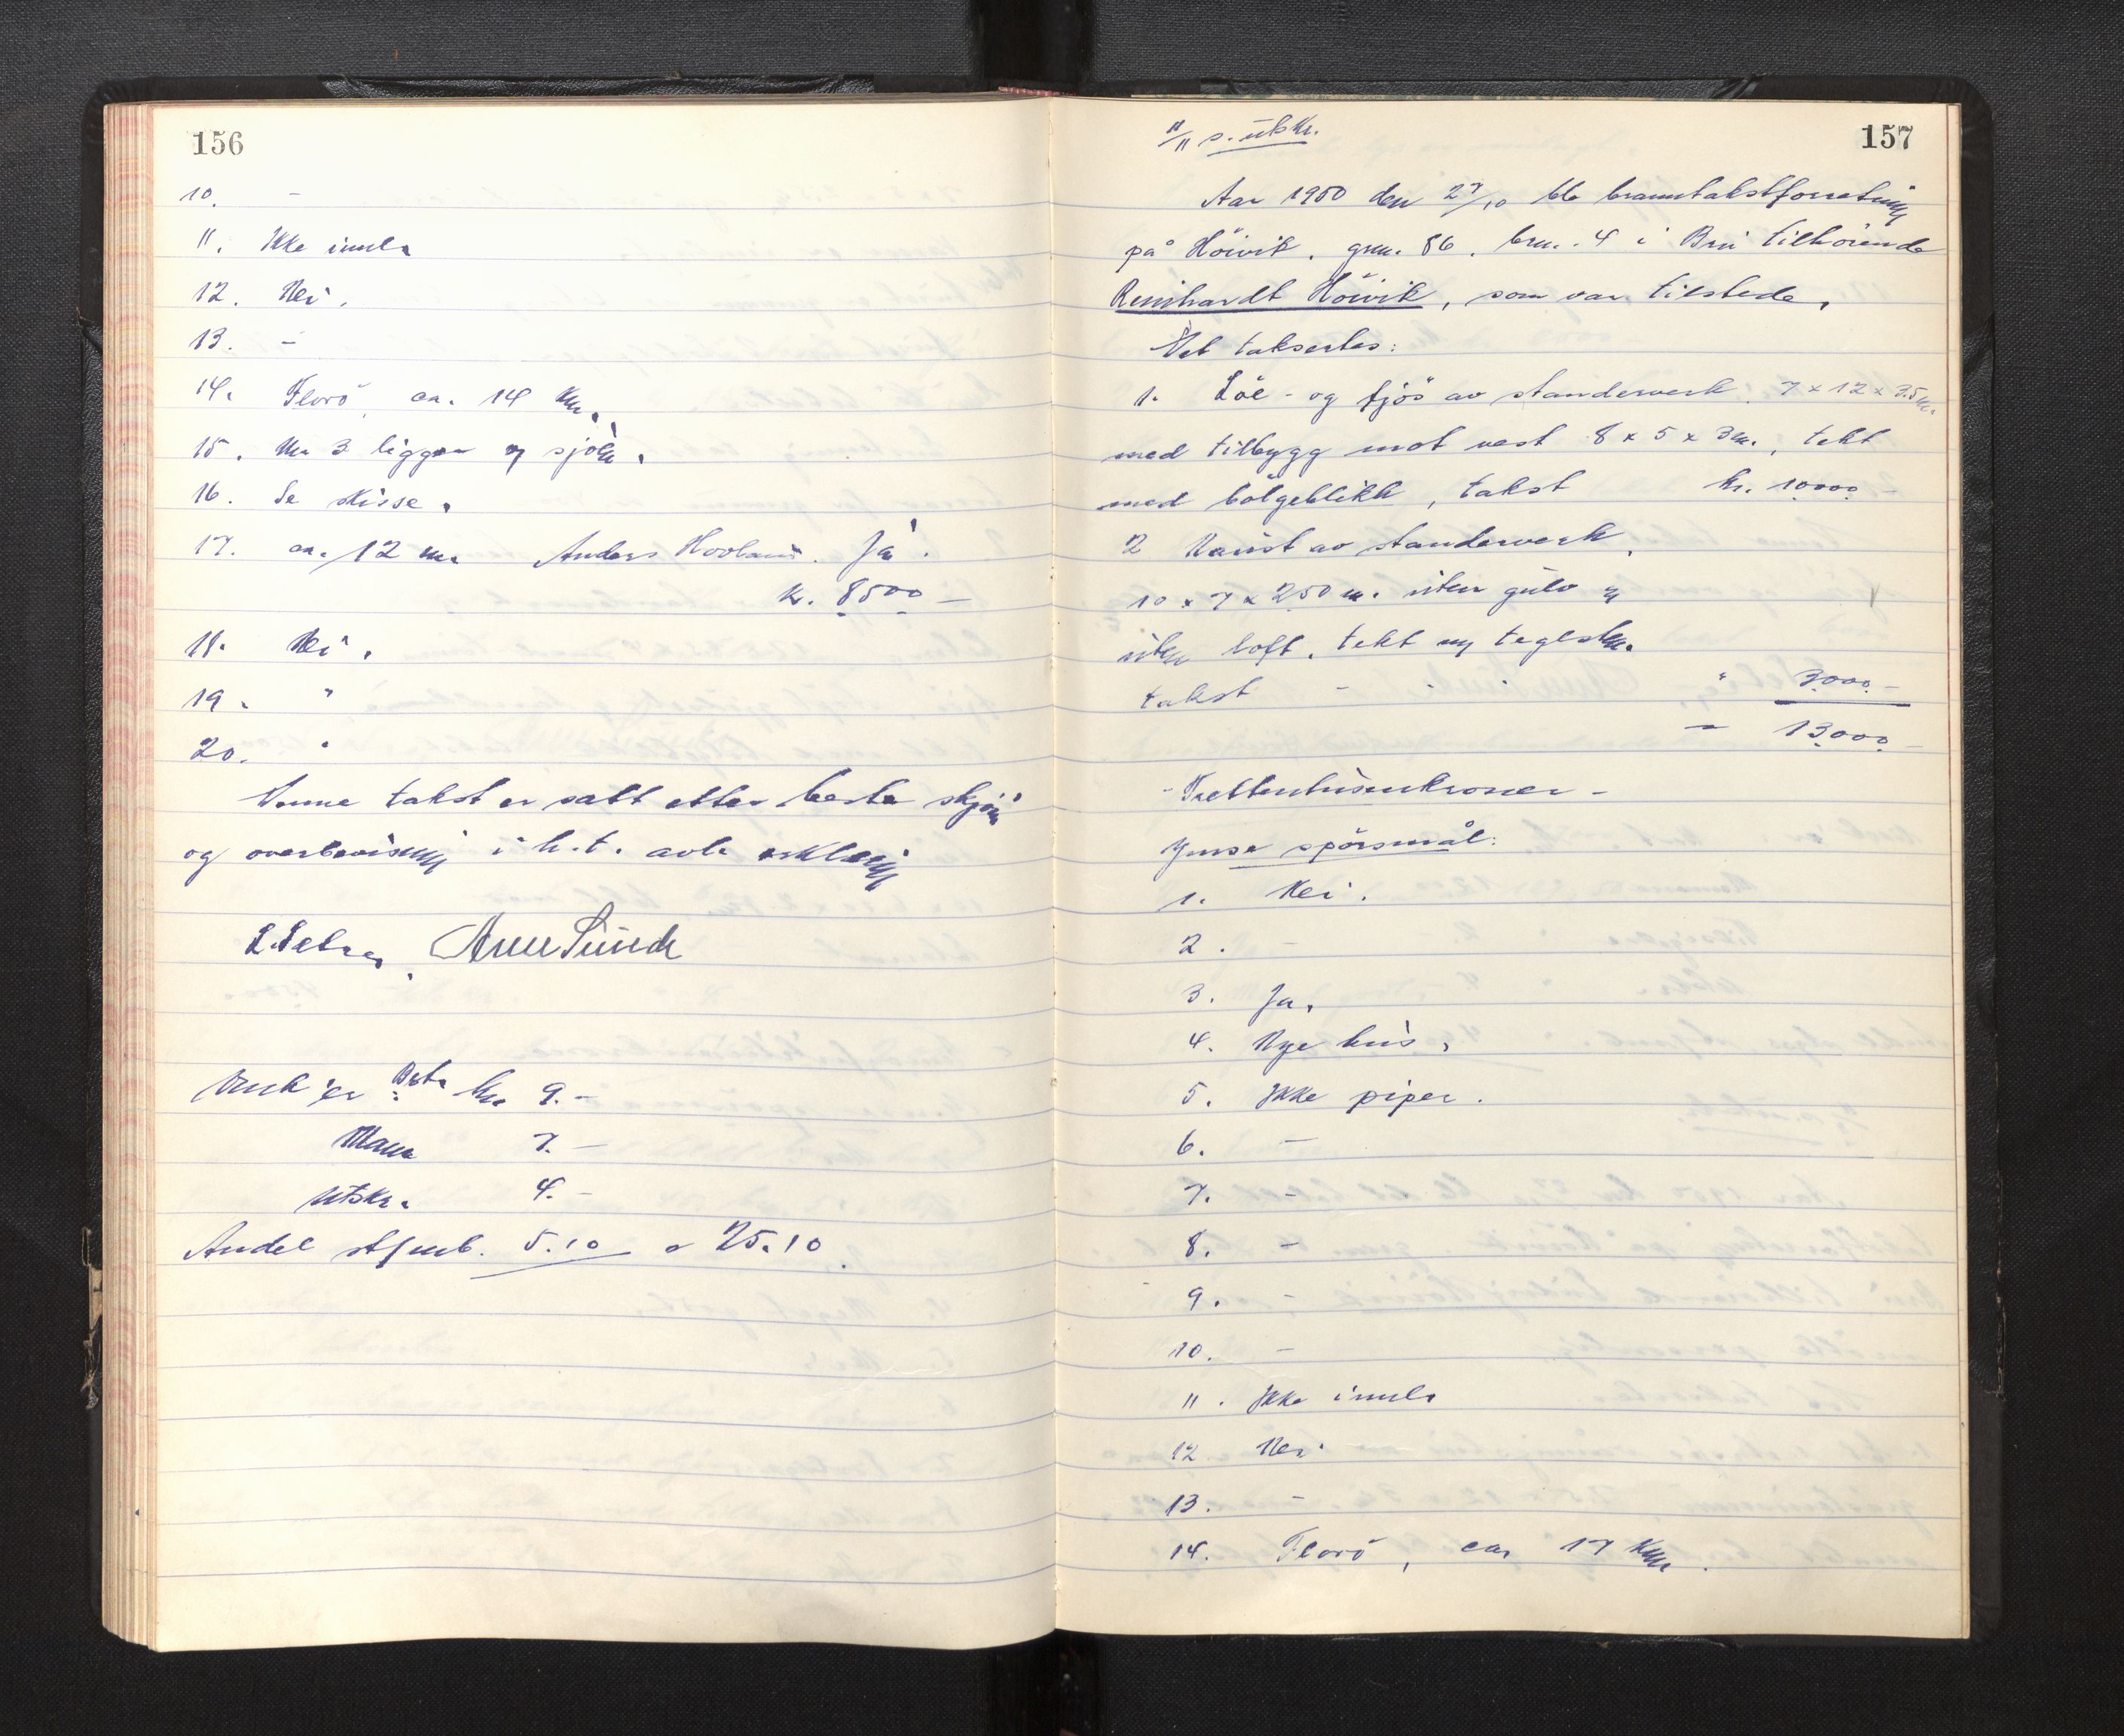 156
10. -
11. Ikke innl.
12. Nei.
13. -
14. Florö, ca. 14 km.
15. Nr 3 ligger v/ sjöen.
16. Se skisse.
17. ca. 12 m. Anders Hovland. Ja.
kr. 8500 -
18. Nei.
19. "
20. "
Denne takst er satt etter beste skjönn
og overbevisning i h.t. avl. erklæring
L. Sælen, Arne Sunde
kr. 9. -
7. -
Utskr. 4. -
Andel 5.10 = 25.10
11/11 s. utskr.
157
Aar 1950 den 27/10 ble branntakstforretning
på Höivik, gnr. 86, brn. 4 i Bru tilhörende
Reinhardt Höivik, som var tilstede.
Det taksertes:
1. Löe - og fjös av standerverk 7 x 12 x 3.5 m.
med tilbygg mot vest 8 x 5 x 3 m., tekt
med bölgeblikk, takst kr. 10000 -
2 Naust av standerverk,
10 x 7 x 2.50 m. uten gulv og
uten loft, tekt m/ teglsten.
takst - - - " 3000 -
- 13000 -
- Trettentusenkroner -
Ymse spörsmål:
1. Nei.
2. -
3. Ja.
4. Nye hus.
5. Ikke piper.
6. -
7. -
8. -
9. -
10. -
11. Ikke innl.
12 Nei.
13. -
14. Florö, ca. 17 km.